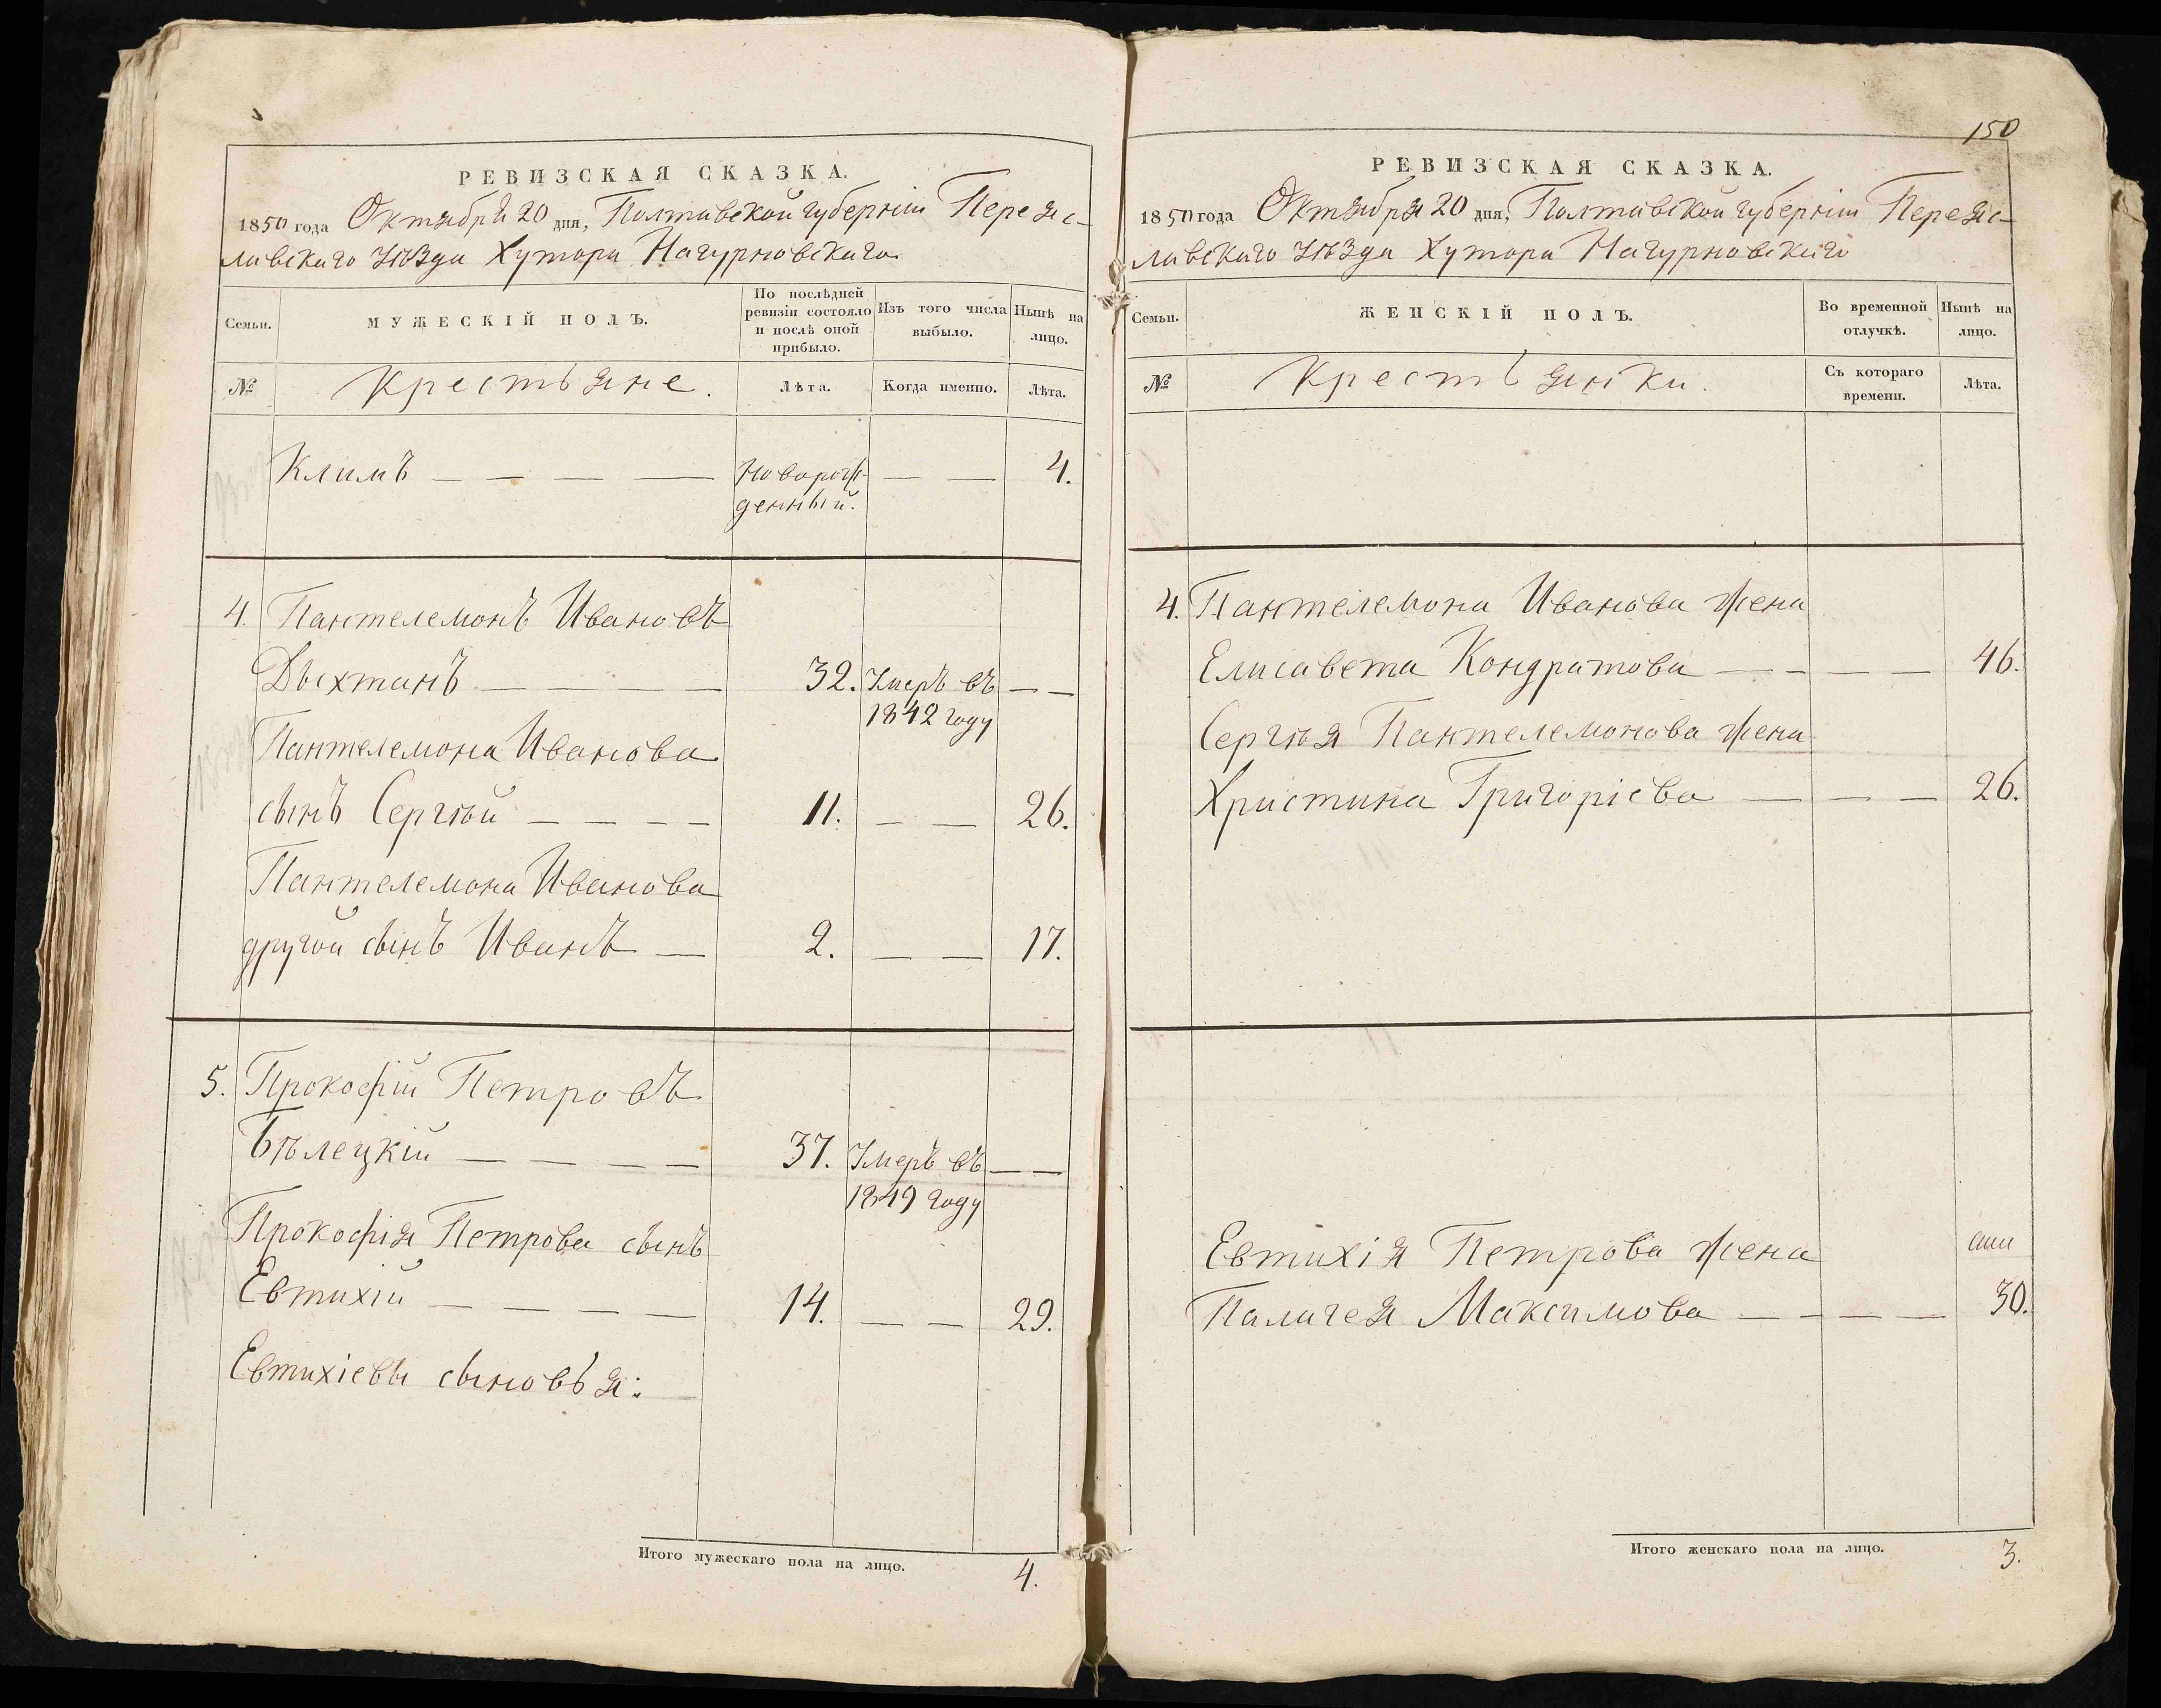 РЕВИЗСКАЯ СКАЗКА.
1850 года Октября 20 дня, Полтавской губерніи Переяс-
лавскаго уѣзда Хутора Нагурновскаго
Семьи.
МУЖЕСКІЙ ПОЛЪ.
По послѣдней
ревизіи состояло
и послѣ оной
прибыло.
Изъ того числа
выбыло.
Нынѣ на
лицо.
№
Крестьяне.
Лѣта.
Когда именно.
Лѣта.
Климъ — — — — Новорож- — — 4.
денный.
4. Пантелемонъ Ивановъ
Дыхтанъ — — — — 32. Умеръ въ — —
1842 году
Пантелемона Иванова
сынъ Сергѣй — — — — 11. — — 26.
Пантелемона Иванова
другой сынъ Иванъ — 2. — — 17.
5. Прокофій Петровъ
Бѣлецкій — — — — 37. Умеръ въ — —
1849 году
Прокофія Петрова сынъ
Евтихій — — — — 14. — — 29.
Евтихіевы сыновья:
Итого мужескаго пола на лицо. 4.
150
РЕВИЗСКАЯ СКАЗКА.
1850 года Октября 20 дня, Полтавской губерніи Переяс-
лавскаго уѣзда Хутора Нагурновскаго
Семьи.
ЖЕНСКІЙ ПОЛЪ.
Во временной
отлучкѣ.
Нынѣ на
лицо.
№
Крестьянки.
Съ котораго
времени.
Лѣта.
4. Пантелемона Иванова жена
Елисавета Кондратова — — — — 46.
Сергѣя Пантелемонова жена
Христина Григоріева — — — 26.
Евтихія Петрова жена
Палагея Максимова — — — — 30.
Итого женскаго пола на лицо. 3.